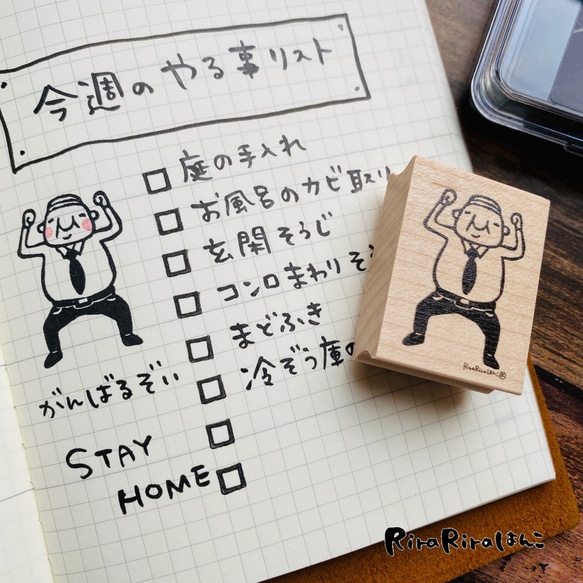 今週のやる事リスト
庭の手入れ
お風呂のカビ取り
玄関そうじ
コンロまわりそ
まどふき
冷ぞう庫の
がんばるぞい
STAY
HOME
RiraRiraはんこ
RiraRiraはんこ